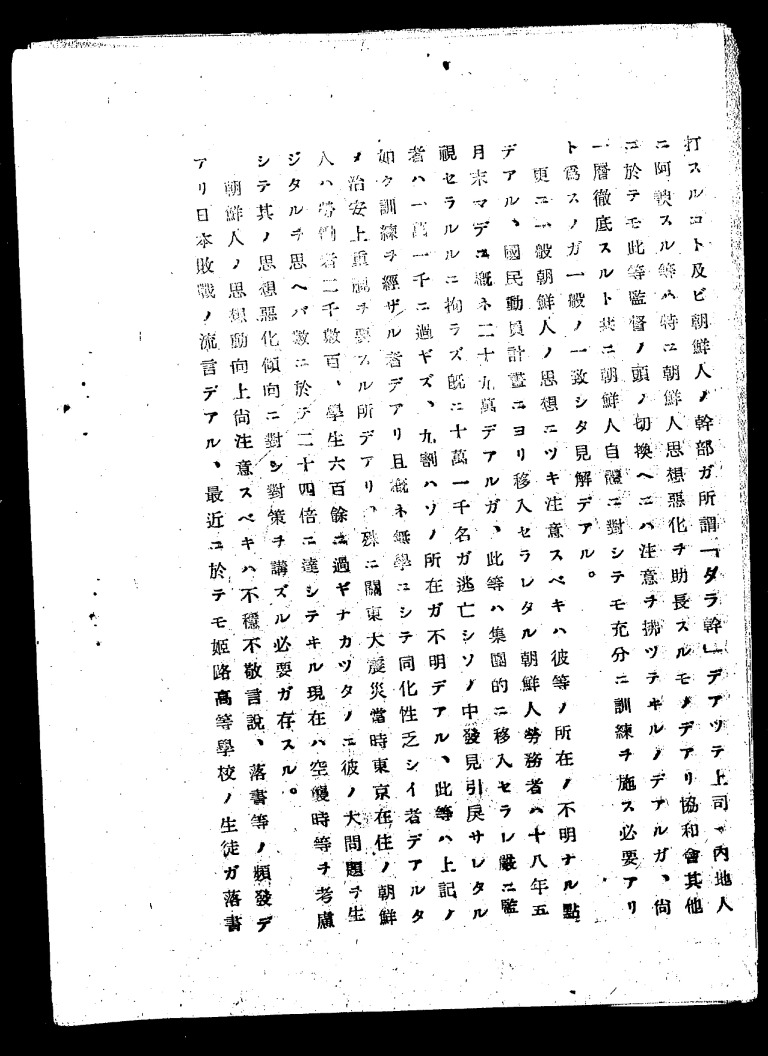 打スルコト及ビ朝鮮人ノ幹部ガ所謂「ダラ幹」デアツテ上司ヤ內地人
ニ阿諛スル等ハ特ニ朝鮮人思想惡化ヲ助長スルモノデアリ協和會其他
ニ於テモ此等監督ノ頭ノ切換ヘニハ注意ヲ拂ツテキルノデアルガ、尙
一層徹底スルト共ニ朝鮮人自體ニ對シテモ充分ニ訓練ヲ施ス必要アリ
ト爲スノガ一般ノ一致シタ見解デアル。
更ニ一般朝鮮人ノ思想ニツキ注意スベキハ彼等ノ所在ノ不明ナル點
デアル、國民動員計畫ニヨリ移入セラレタル朝鮮人勞務者ハ十八年五
月末マデニ槪ネ二十九萬デアルガ、此等ハ集團的ニ移入セラレ嚴ニ監
視セラルルニ拘ラズ旣ニ十萬一千名ガ逃亡シソノ中發見引戾サレタル
者ハ一萬一千ニ過ギズ、九割ハソノ所在ガ不明デアル、此等ハ上記ノ
如ク訓練ヲ經ザル者デアリ且槪ネ無學ニシテ同化性乏シイ者デアルタ
メ治安上重視ヲ要スル所デアリ、殊ニ關東大震災當時東京在住ノ朝鮮
人ハ勞働者二千數百、學生六百餘ニ過ギナカツタノニ彼ノ大問題ヲ生
ジタルヲ思ヘバ數ニ於テ二十四倍ニ達シテキル現在ハ空襲時等ヲ考慮
シテ其ノ思想惡化傾向ニ對シ對策ヲ講ズル必要ガ存スル。
朝鮮人ノ思想動向上尙注意スベキハ不穩不敬言說、落書等ノ頻發デ
アリ日本敗戰ノ流言デアル、最近ニ於テモ姬路高等學校ノ生徒ガ落書